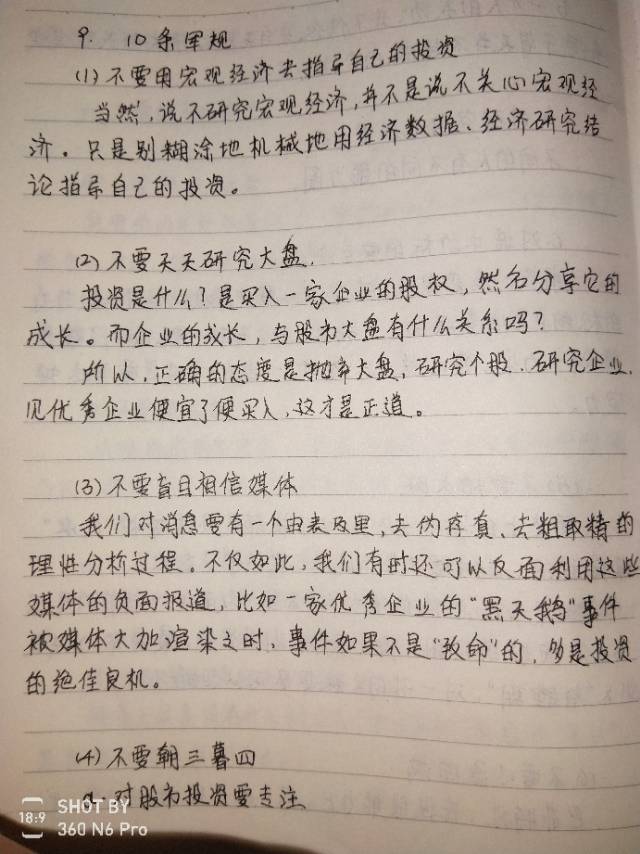 9. 10条军规
(1)不要用宏观经济去指导自己的投资
当然,说不研究宏观经济,并不是说不关心宏观经
济。只是别糊涂地机械地用经济数据、经济研究结
论指导自己的投资。
(2)不要天天研究大盘.
投资是什么?是买入一家企业的股权,然后分享它的
成长。而企业的成长,与股市大盘有什么关系吗?
所以,正确的态度是抛弃大盘,研究个股.研究企业,
见优秀企业便宜了便买入,这才是正道。
(3)不要盲目相信媒体
我们对消息要有一个由表及里,去伪存真、去粗取精的
理性分析过程。不仅如此,我们有时还可以反面利用这些
媒体的负面报道,比如一家优秀企业的“黑天鹅”事件
被媒体大加渲染之时,事件如果不是“致命”的,多是投资
的绝佳良机。
(4)不要朝三暮四
a.对股市投资要专注
18:9
SHOT BY
360 N6 Pro